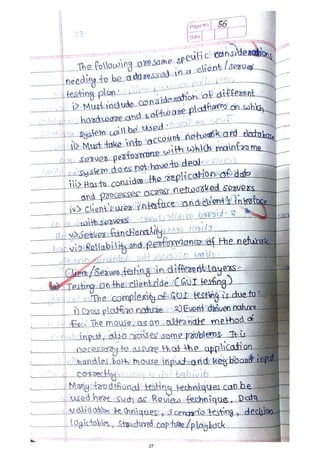 Page No. 56
Date
The following are some specific considerations
needing to be addressed in a client/server
testing plan:
i) Must include consideration of different
hardware and software platforms on which
system will be used.
ii) Must take into account network and database
server performance with which mainframe
system does not have to deal
iii) Has to consider the replication of data
and processes across networked servers
iv) Client's user interface and client's interface
with servers
v) Server functionality
vi) Reliability and performance of the network
Client/Server testing in different layers-
Testing on the client side (GUI testing)
The complexity of GUI testing is due to:
1) Cross platform nature 2) Event driven nature
Ex: The mouse, as an alternate method of
input, also raises some problems. It is
necessary to assure that the application
handles both mouse input and keyboard input
correctly.
Many traditional testing techniques can be
used here such as Review technique, Data
validation techniques, scenario testing, decision
logic tables, structured capture/playback.
27